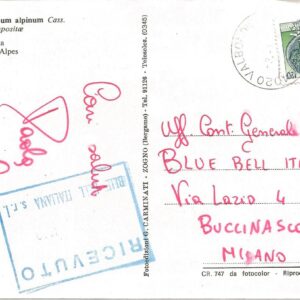 um alpinum Cass.
positæ
a
Alpes
Con saluti
Paola
BLUE BELL ITALIANA s.r.l.
RICEVUTO
Fotoedizioni G. CARMINATI - ZOGNO (Bergamo) - Tel. 91126 - Telselez. (0345)
Uff. Cont. Generale
BLUE BELL ITA
Via Lazio 4
BUCCINASCO
MILANO
CR. 747 da fotocolor - Ripro